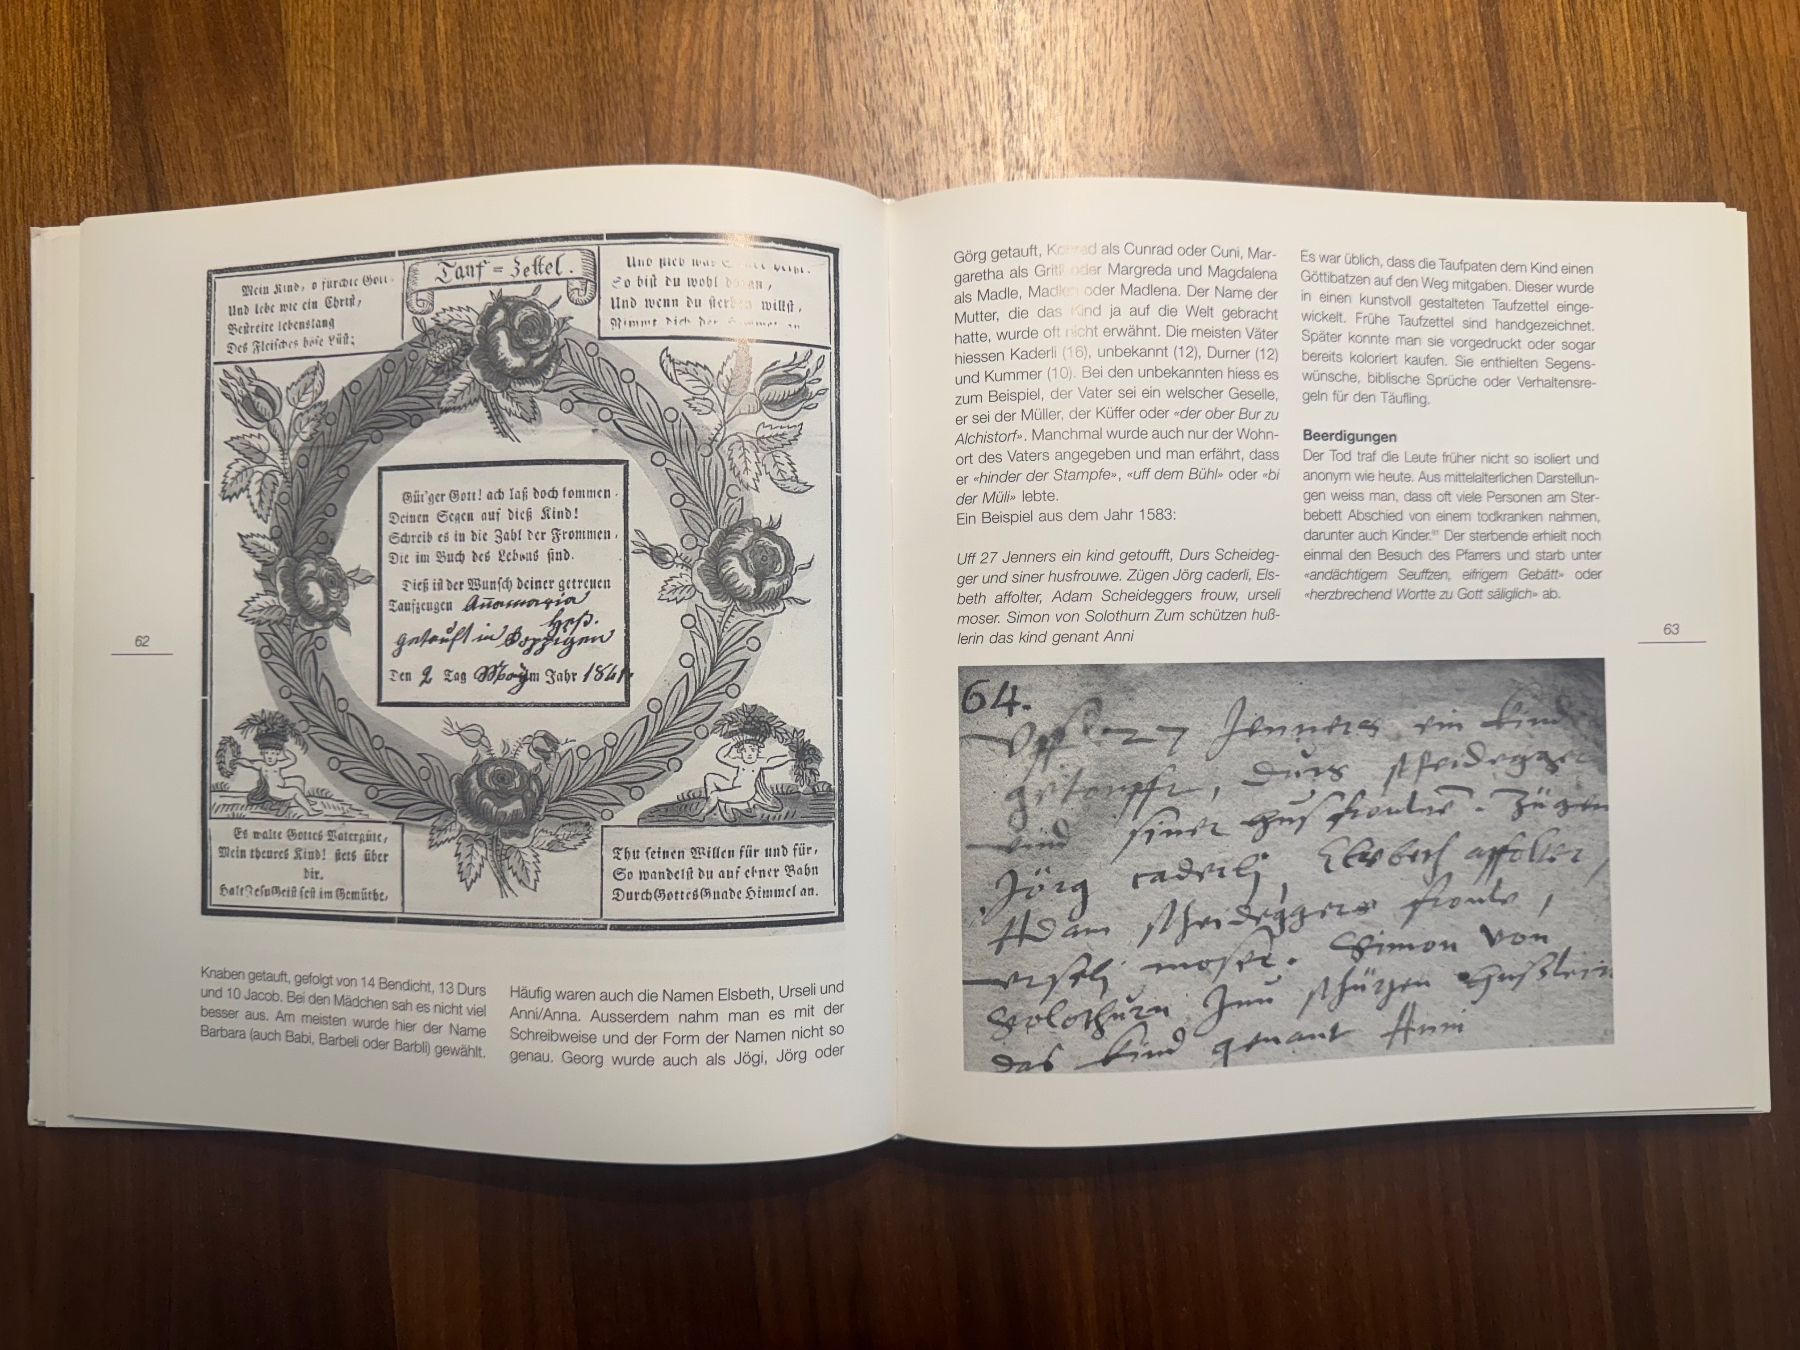 Tauf = Zettel.
Mein Kind, o fürchte Gott
Und lebe wie ein Christ,
Bestreite lebenslang
Des Fleisches böse Lüst;
Und
So bist du wohl daran,
Und wenn du sterben willst,
Nimmt dich der Himmel an
Güt'ger Gott! ach laß doch kommen
Deinen Segen auf dieß Kind!
Schreib es in die Zahl der Frommen,
Die im Buch des Lebens sind.
Dieß ist der Wunsch deiner getreuen
Taufzeugen Annamaria
Heß.
getauft in Coppigen
Den 2 Tag May im Jahr 1841.
Es walte Gottes Vatergüte,
Mein theures Kind! stets über
dir.
Halt Jesu Geist fest im Gemüthe,
Thu seinen Willen für und für,
So wandelst du auf ebner Bahn
Durch Gottes Gnade Himmel an.
62
Knaben getauft, gefolgt von 14 Bendicht, 13 Durs
und 10 Jacob. Bei den Mädchen sah es nicht viel
besser aus. Am meisten wurde hier der Name
Barbara (auch Babi, Barbeli oder Barbli) gewählt.
Häufig waren auch die Namen Elsbeth, Urseli und
Anni/Anna. Ausserdem nahm man es mit der
Schreibweise und der Form der Namen nicht so
genau. Georg wurde auch als Jögi, Jörg oder
Görg getauft, Konrad als Cunrad oder Cuni, Mar-
garetha als Gritli oder Margreda und Magdalena
als Madle, Madlen oder Madlena. Der Name der
Mutter, die das Kind ja auf die Welt gebracht
hatte, wurde oft nicht erwähnt. Die meisten Väter
hiessen Kaderli (16), unbekannt (12), Durner (12)
und Kummer (10). Bei den unbekannten hiess es
zum Beispiel, der Vater sei ein welscher Geselle,
er sei der Müller, der Küffer oder «der ober Bur zu
Alchistorf». Manchmal wurde auch nur der Wohn-
ort des Vaters angegeben und man erfährt, dass
er «hinder der Stampfe», «uff dem Bühl» oder «bi
der Müli» lebte.
Ein Beispiel aus dem Jahr 1583:
Uff 27 Jenners ein kind getoufft, Durs Scheideg-
ger und siner husfrouwe. Zügen Jörg caderli, Els-
beth affolter, Adam Scheideggers frouw, urseli
moser. Simon von Solothurn Zum schützen huß-
lerin das kind genant Anni
Es war üblich, dass die Taufpaten dem Kind einen
Göttibatzen auf den Weg mitgaben. Dieser wurde
in einen kunstvoll gestalteten Taufzettel einge-
wickelt. Frühe Taufzettel sind handgezeichnet.
Später konnte man sie vorgedruckt oder sogar
bereits koloriert kaufen. Sie enthielten Segens-
wünsche, biblische Sprüche oder Verhaltensre-
geln für den Täufling.
Beerdigungen
Der Tod traf die Leute früher nicht so isoliert und
anonym wie heute. Aus mittelalterlichen Darstellun-
gen weiss man, dass oft viele Personen am Ster-
bebett Abschied von einem todkranken nahmen,
darunter auch Kinder. Der sterbende erhielt noch
einmal den Besuch des Pfarrers und starb unter
«andächtigem Seuffzen, eifrigem Gebätt» oder
«herzbrechend Wortte zu Gott säliglich» ab.
63
64.
Uff 27 Jenners ein kind
getoufft, Durs scheidegger
und siner husfrouwe. Zügen
Jörg caderlj, Elsbeth affolter,
Adam scheideggers frouw,
urselj moser. Simon von
Solothurn Zum schützen hußlerin
das kind genant Anni